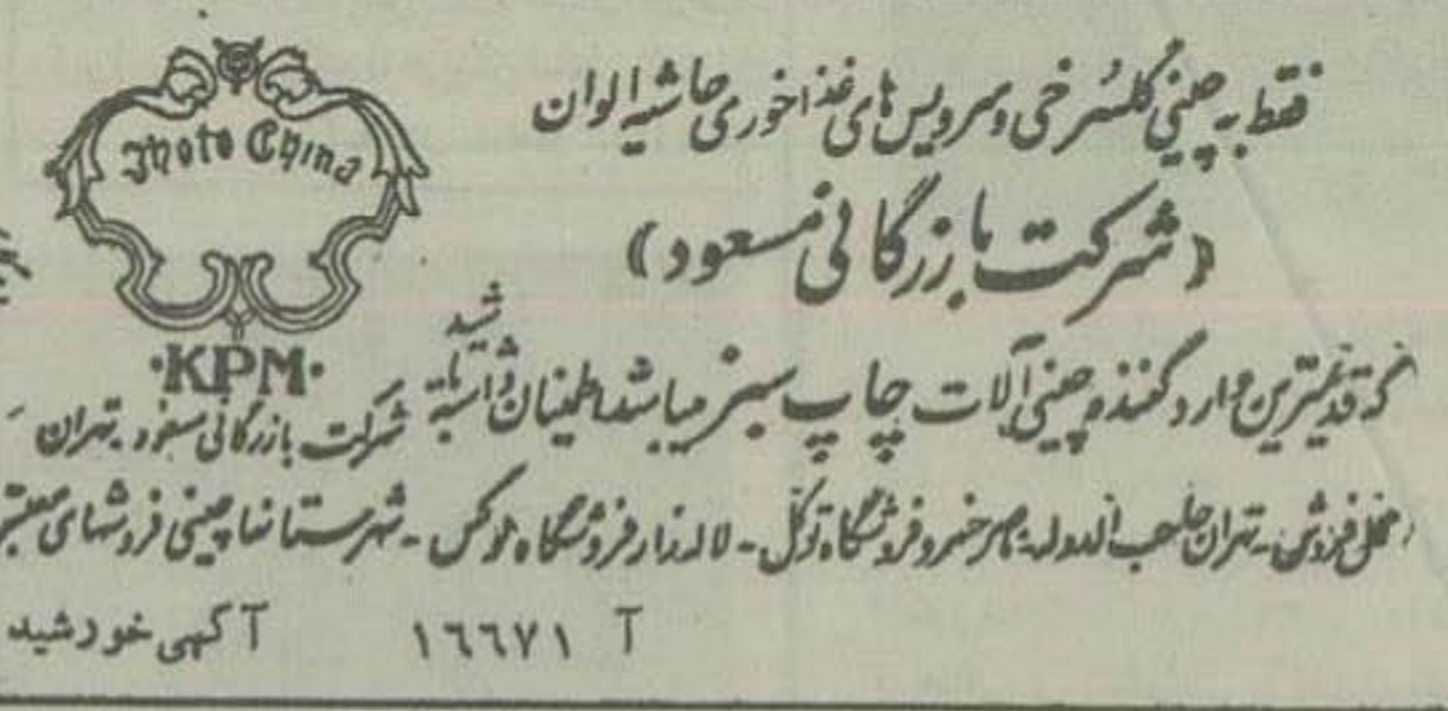 Photo China
·KPM·
فقط به چینی گلسُرخی و سرویس های غذاخوری حاشیه الوان
(شرکت بازرگانی مسعود)
که قدیمترین وارد کننده چینی آلات چاپ سبز میباشد اطمینان داشته باشید
شرکت بازرگانی مسعود - تهران
محل فروش - تهران حاجب الدوله - ناصرخسرو فروشگاه توکل - لاله زار فروشگاه لوکس - شهرستانها چینی فروشهای معتبر
آ ۱٦٦٧۱ آگهی خورشید